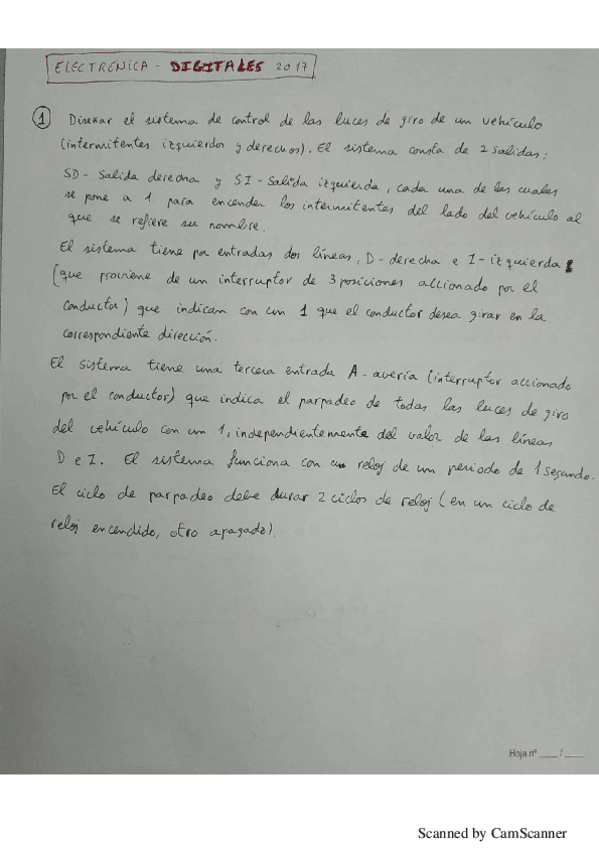 ELECTRÓNICA - DIGITALES 2017
1 Diseñar el sistema de control de las luces de giro de un vehículo
(intermitentes izquierdos y derechos). El sistema consta de 2 salidas:
SD - Salida derecha y SI - Salida izquierda, cada una de las cuales
se pone a 1 para encender los intermitentes del lado del vehículo al
que se refiere su nombre.
El sistema tiene por entradas dos líneas, D - derecha e I - izquierda
(que proviene de un interruptor de 3 posiciones accionado por el
conductor) que indican con un 1 que el conductor desea girar en la
correspondiente dirección.
El sistema tiene una tercera entrada A - avería (interruptor accionado
por el conductor) que indica el parpadeo de todas las luces de giro
del vehículo con un 1, independientemente del valor de las líneas
D e I. El sistema funciona con un reloj de un periodo de 1 segundo.
El ciclo de parpadeo debe durar 2 ciclos de reloj (en un ciclo de
reloj encendido, otro apagado).
Hoja nº ___/___
Scanned by CamScanner